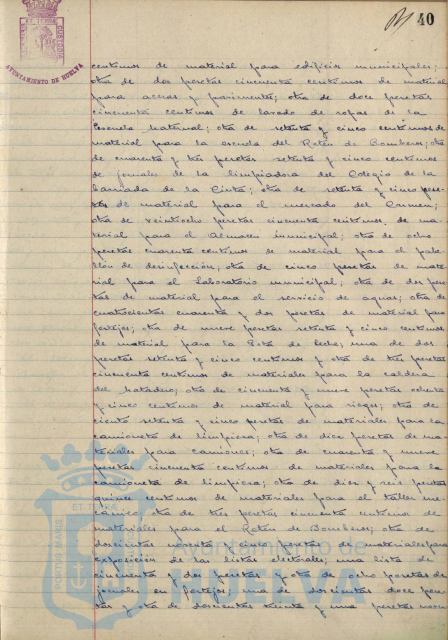 40
AYUNTAMIENTO DE HUELVA
centimos de material para edificios municipales;
otra de dos pesetas cincuenta centimos de material
para aceras y pavimentos; otra de doce pesetas
cincuenta centimos de lavado de ropas de la
Escuela Maternal; otra de setenta y cinco centimos de
material para la escuela del Retén de Bomberos; otra
de cuarenta y tres pesetas setenta y cinco centimos
de jornales de la limpiadora del Colegio de la
barriada de la Cinta; otra de setenta y cinco pese
tas de material para el mercado del Carmen;
otra de veintiocho pesetas cincuenta centimos de ma
terial para el Almacen municipal; otra de ocho
pesetas cuarenta centimos de material para el pabe
llón de desinfección; otra de cinco pesetas de mate
rial para el Laboratorio municipal; otra de dos pese
tas de material para el servicio de aguas; otra de
cuatrocientas cuarenta y dos pesetas de material para
festejos; otra de nueve pesetas setenta y cinco centimos
de material para la Gota de leche; una de dos
pesetas setenta y cinco centimos y otra de tres pesetas
cincuenta centimos de materiales para la caldera
del Matadero; otra de cincuenta y nueve pesetas ochenta
y cinco centimos de material para riegos; otra de
ciento setenta y cinco pesetas de materiales para la
camioneta de limpieza; otra de diez pesetas de ma
teriales para camiones; otra de cuarenta y nueve
pesetas cincuenta centimos de materiales para la
camioneta de limpieza; otra de diez y seis pesetas
quince centimos de materiales para el taller me
canico; otra de tres pesetas cincuenta centimos de
materiales para el Retén de Bomberos; otra de
doscientas noventa y cinco pesetas de materiales para
exposición de las listas electorales; una lista de
cincuenta y dos pesetas y otra de ocho pesetas de
jornales en festejos; una de doscientas doce pese
tas y otra de doscientas treinta y una pesetas
Ayuntamiento de
HUELVA